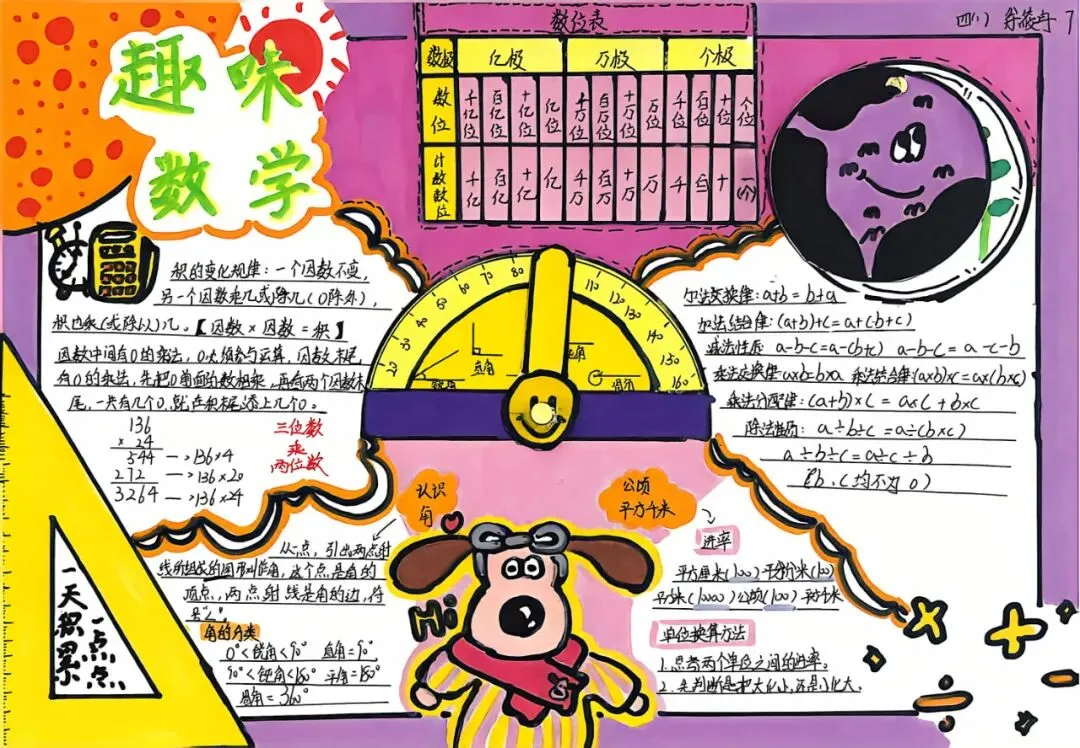 趣味
数学
数位表
数级 亿级 万级 个级
数位 千亿位 百亿位 十亿位 亿位 千万位 百万位 十万位 万位 千位 百位 十位 个位
计数数位 千亿 百亿 十亿 亿 千万 百万 十万 万 千 百 十 一(个)
四(1)
积的变化规律：一个因数不变，
另一个因数乘几或除几(0除外)，
积也乘(或除以)几。【因数×因数=积】
因数中间有0的乘法，0也须参与运算，因数末尾
有0的乘法，先把0前面的数相乘，再看两个因数末
尾，一共有几个0，就在积末尾添上几个0。
136
× 24
544 —>136×4
272 —>136×20
3264 —>136×24
三位数
乘
两位数
20 40 50 60 70 80 110 120 130 150 160
锐角 直角 周角
加法交换律：a+b=b+a
加法结合律：(a+b)+c=a+(b+c)
减法性质 a-b-c=a-(b+c) a-b-c=a-c-b
乘法交换律a×b=b×a 乘法结合律：(a×b)×c=a×(b×c)
乘法分配律：(a+b)×c=a×c+b×c
除法性质：a÷b÷c=a÷(b×c)
a÷b÷c=a÷c÷b
(b、c均不为0)
认识
角
从一点，引出两点射
线所组成的图形叫做角，这个点是角的
顶点，两点射线是角的边，符
号“∠”
角的分类
0°<锐角<90° 直角=90°
90°<钝角<180° 平角=180°
周角=360°
公顷
平方千米
进率
平方厘米(100)平方分米(100)
平方米(10000)公顷(100)平方千米
单位换算方法
1.思考两个单位之间的进率。
2.先判断是把大化小，还是小化大。
Hi
S
一天
积累
一点点